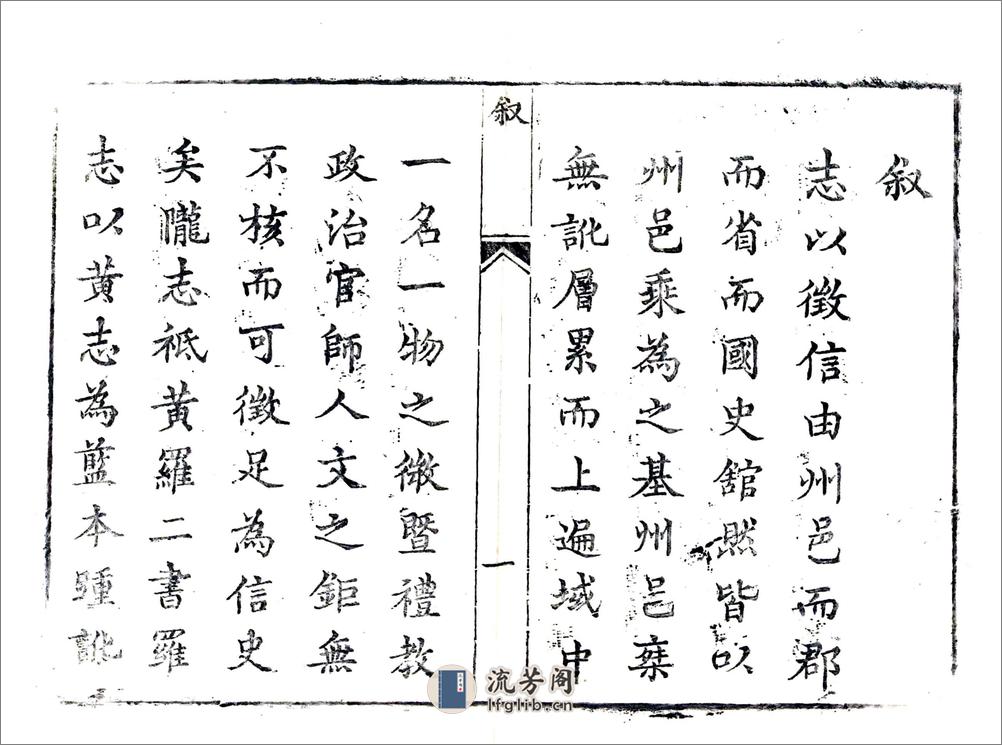 叙
志以徵信由州邑而郡
而省而國史舘然皆以
州邑乘為之基州邑乘
無訛層累而上遍域中
叙
一
一名一物之微暨禮教
政治官師人文之鉅無
不核而可徵足為信史
矣隴志祗黄羅二書羅
志以黄志為藍本踵訛
流芳阁
lfglib.cn